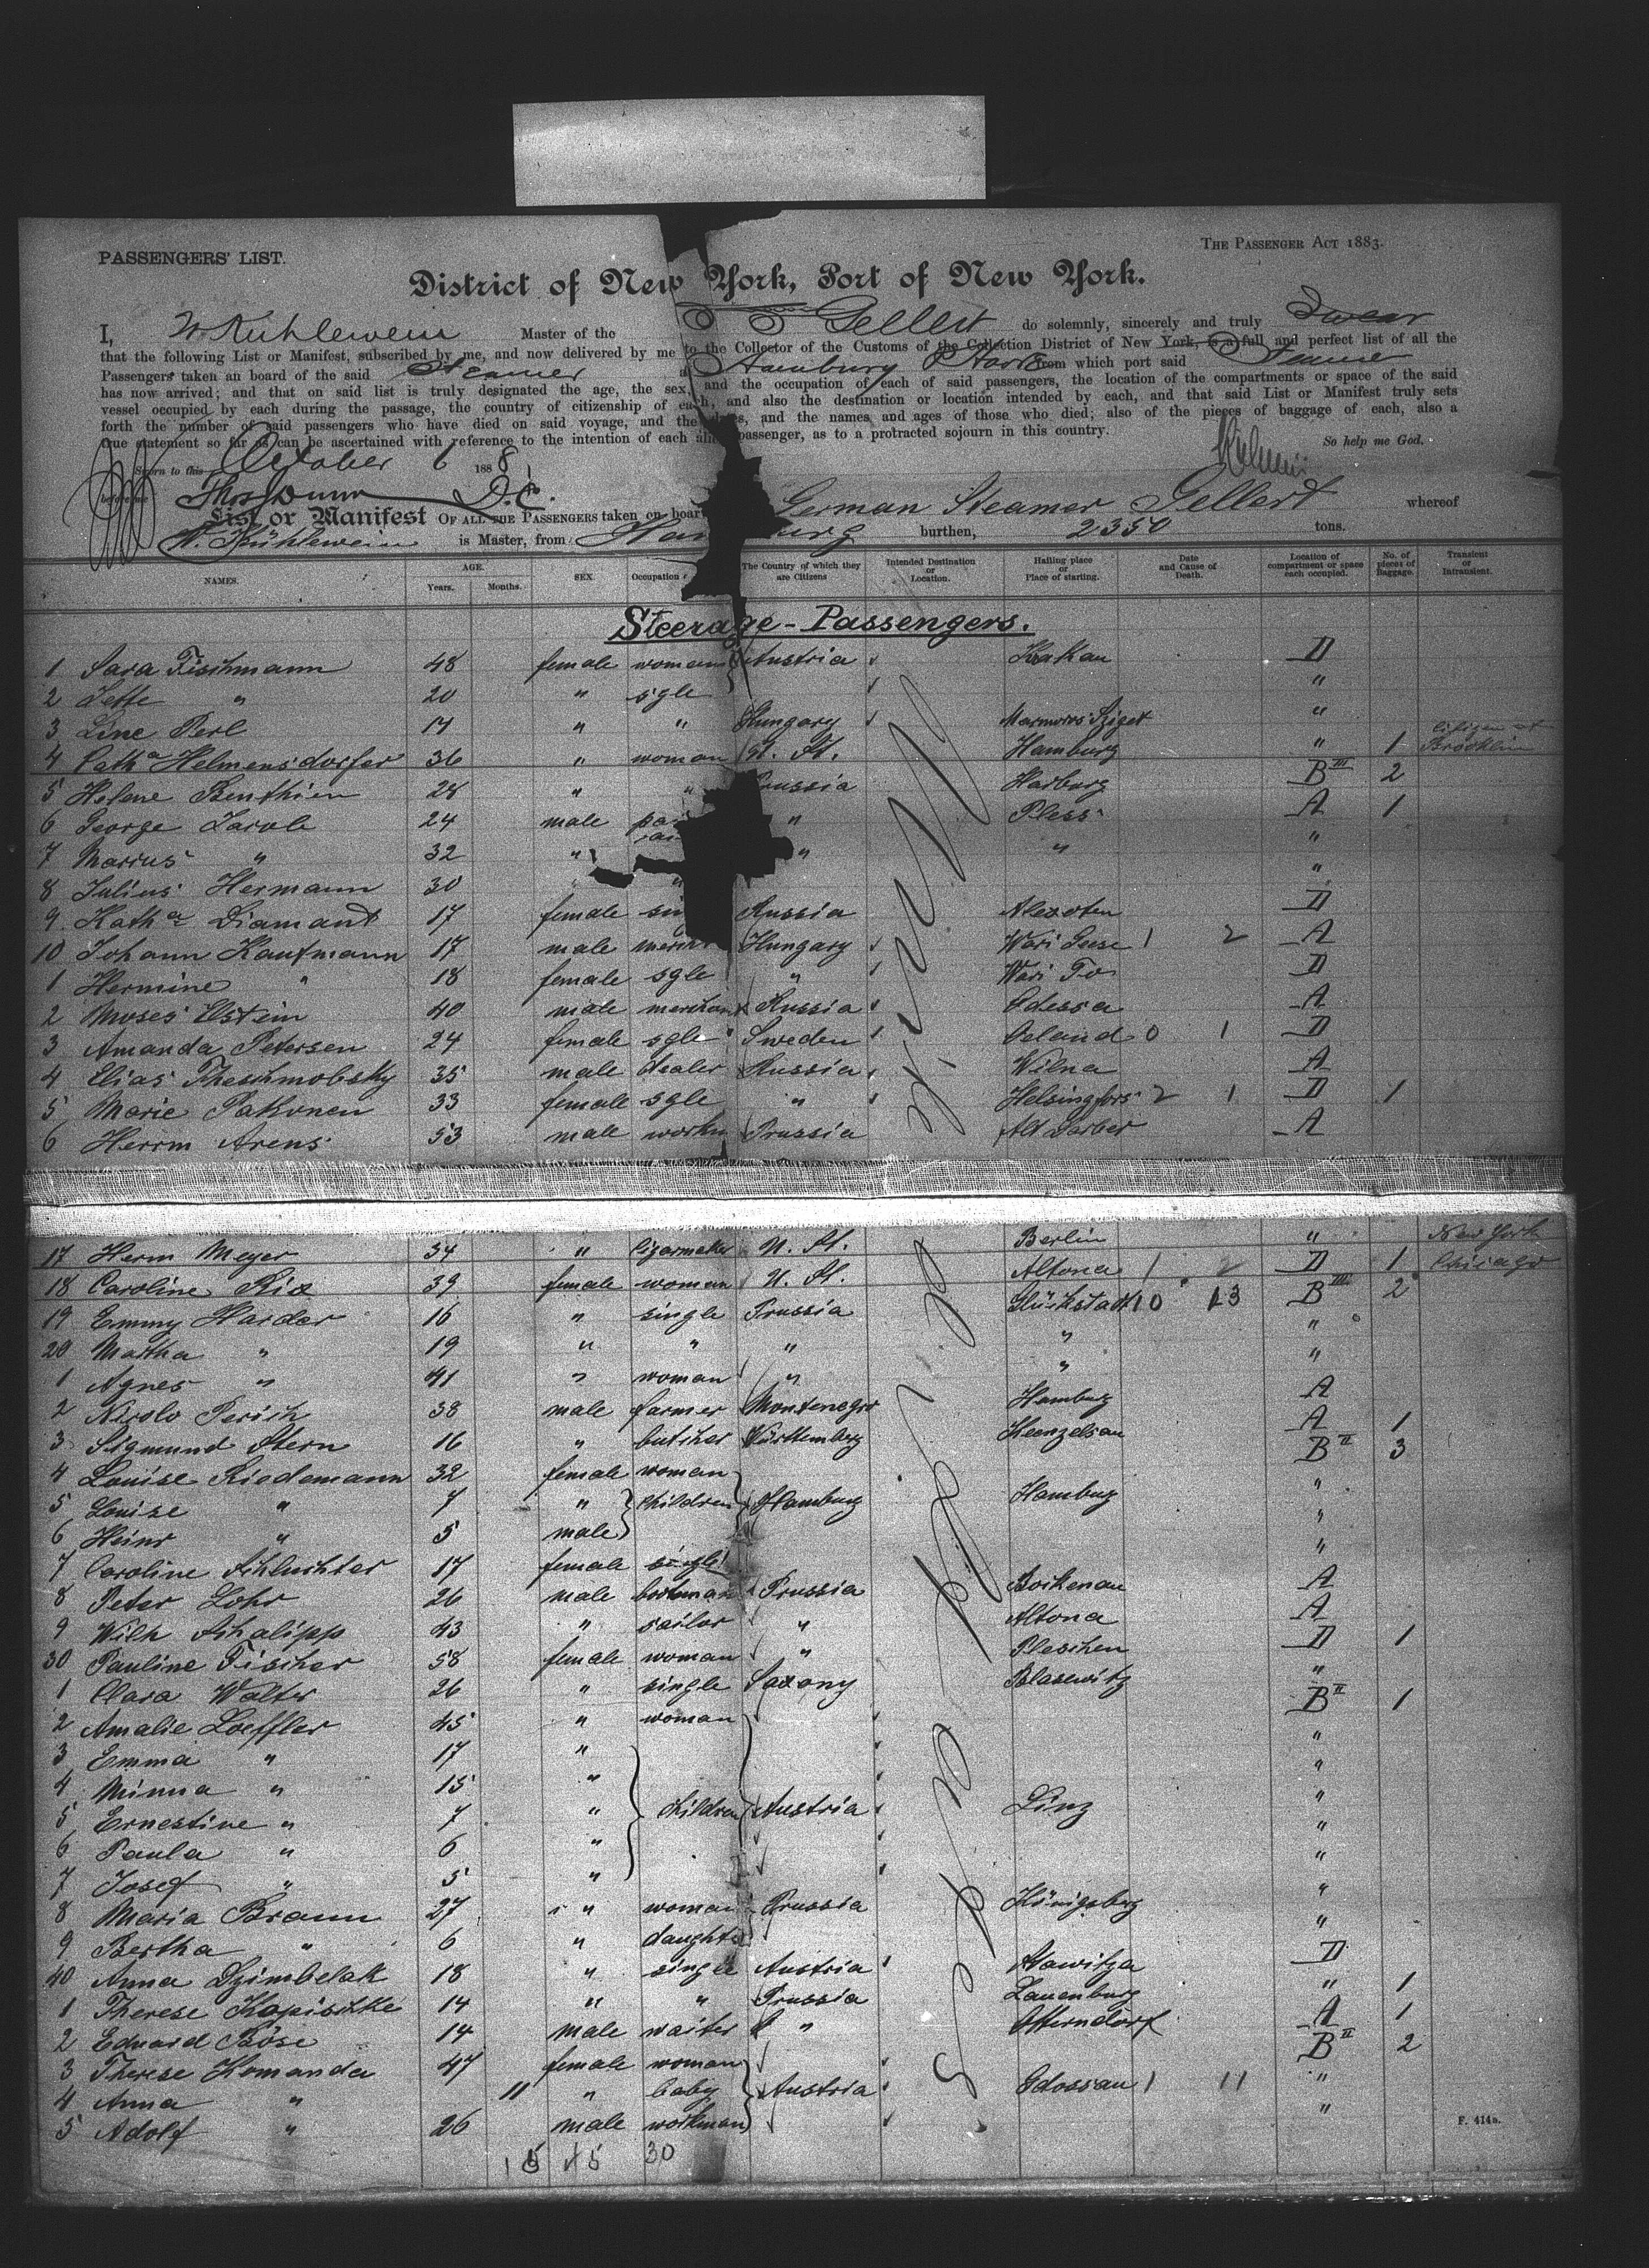 PASSENGERS' LIST.
THE PASSENGER ACT 1883.
District of New York, Port of New York.
I, W Kühlewein Master of the Gellert do solemnly, sincerely and truly Swear
that the following List or Manifest, subscribed by me, and now delivered by me to the Collector of the Customs of the Collection District of New York, is a full and perfect list of all the
Passengers taken on board of the said Steamer Hamburg Havre from which port said Steamer
has now arrived; and that on said list is truly designated the age, the sex, and the occupation of each of said passengers, the location of the compartments or space of the said
vessel occupied by each during the passage, the country of citizenship of each, and also the destination or location intended by each, and that said List or Manifest truly sets
forth the number of said passengers who have died on said voyage, and the and the names and ages of those who died; also of the pieces of baggage of each, also a
true statement so far as can be ascertained with reference to the intention of each alien passenger, as to a protracted sojourn in this country.
So help me God.
Sworn to this October 6 1888
before me Thos Dunn D.C.
List or Manifest OF ALL THE PASSENGERS taken on board German Steamer Gellert whereof
W. Kühlewein is Master, from Hamburg burthen, 2350 tons.
NAMES. AGE. Years. Months. SEX. Occupation The Country of which they are Citizens Intended Destination or Location. Hailing place or Place of starting. Date and Cause of Death. Location of compartment or space each occupied. No. of pieces of Baggage. Transient or Intransient.
Steerage-Passengers.
1 Sara Fischmann 48 female woman Austria Krakau D
2 Jette " 20 " sgle "
3 Line Perl 17 " " Hungary Marmoros Sziget "
4 Cath a Helmensdorfer 36 " woman U. St. Hamburg " 1 citizen Brooklin
5 Helene Benthien 28 " " Prussia Harburg B III 2
6 George 24 male " Pless A 1
7 " 32 " " " "
8 Julius Hermann 30 " " "
9 Kath a Diamant 17 female Russia Alexoten D
10 Johann Kaufmann 17 male Hungary 1 2 A
1 Hermine " 18 female sgle " D
2 Moses Elstein 40 male merchant Russia Odessa A
3 Amanda Petersen 24 female sgle Sweden Oeland 0 1 D
4 Elias 35 male dealer Russia Wilna A
5 Marie Pakonen 33 female sgle " Helsingfors 2 1 D 1
6 Herrm Arens 53 male workm Prussia A
17 Herm Meyer 34 " Cigarmaker U. St. Berlin " New York
18 Caroline Rix 39 female woman U. St. Altona 1 2 D 1 Chicago
19 Emmy Harder 16 " single Prussia Glückstadt 10 13 B III 2
20 Martha " 19 " " " " "
1 Agnes " 41 " woman " " "
2 Nicolo Perich 38 male farmer Montenegro Hamburg A
3 Sigmund Stern 16 " butcher Württemberg Kuenzelsau A 1
4 Louise Riedemann 32 female woman B II 3
5 Louise " 7 " children Hamburg Hamburg "
6 Heinr " 5 male "
7 Caroline Schluchter 17 female single "
8 Peter Lohr 26 male workman Prussia Bockenau A
9 Wilh Schalipp 43 " sailor " Altona A
30 Pauline Fischer 58 female woman " Pleschen D 1
1 Clara Walter 26 " single Saxony Blasewitz "
2 Amalie Loeffler 45 " woman B II 1
3 Emma " 17 " "
4 Minna " 15 " "
5 Ernestine " 7 " children Austria Linz "
6 Paula " 6 " "
7 Josef " 5 " "
8 Maria Braun 27 " woman Prussia Königsberg "
9 Bertha " 6 " daughter "
40 Anna Dzimbelak 18 " single Austria D
1 Therese Kopischke 14 " " Prussia Lauenburg " 1
2 Eduard Böse 14 male waiter " Otterndorf A 1
3 Therese Komanda 47 female woman B II 2
4 Anna " 11 " baby Austria 1 11 "
5 Adolf " 26 male workman "
15 45 30
F. 414a.